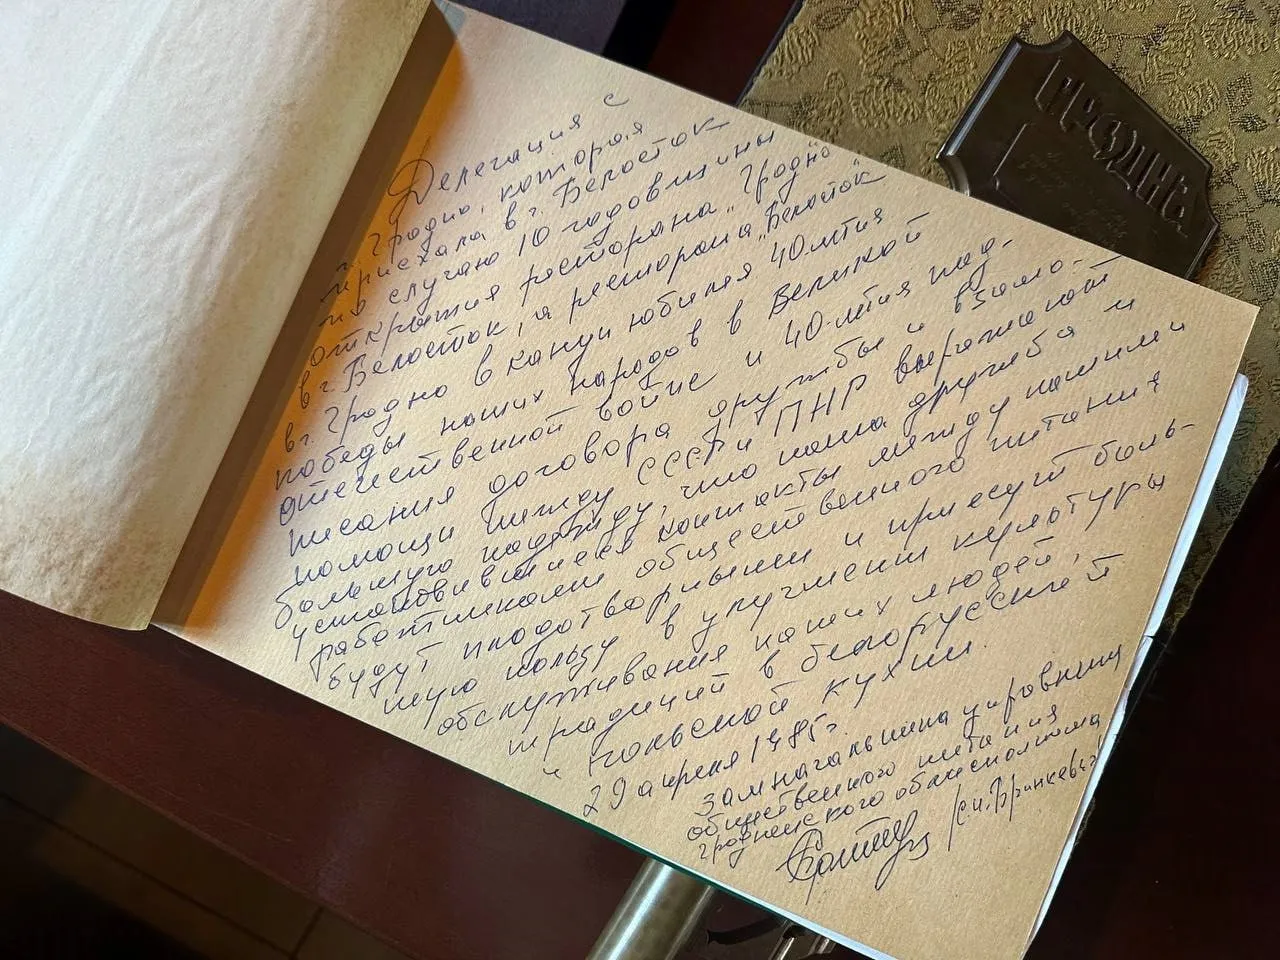 Делегация с
г. Гродно, которая
приехала в г. Белосток
по случаю 10 годовщины
открытия ресторана „Гродно
в г. Белосток, а ресторана „Белосток"
в г. Гродно в канун юбилея 40-летия
победы наших народов в Великой
отечественной войне и 40-летия под-
писания договора дружбы и взаимо-
помощи между СССР и ПНР выражают
большую надежду, что наша дружба и
установившиеся контакты между нашими
работниками общественного питания
будут плодотворными и принесут боль-
шую пользу в улучшении культуры
обслуживания наших людей,
традиций в белорусской
и польской кухни.
29 апреля 1985 г.
Зам начальника управления
общественного питания
Гродненского облисполкома
ГРОДНО